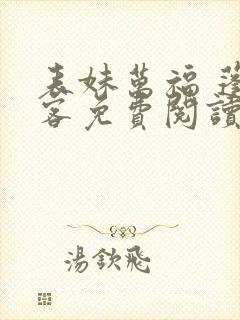 表妹萬福 蓬
客免費閱讀
湯欽飛